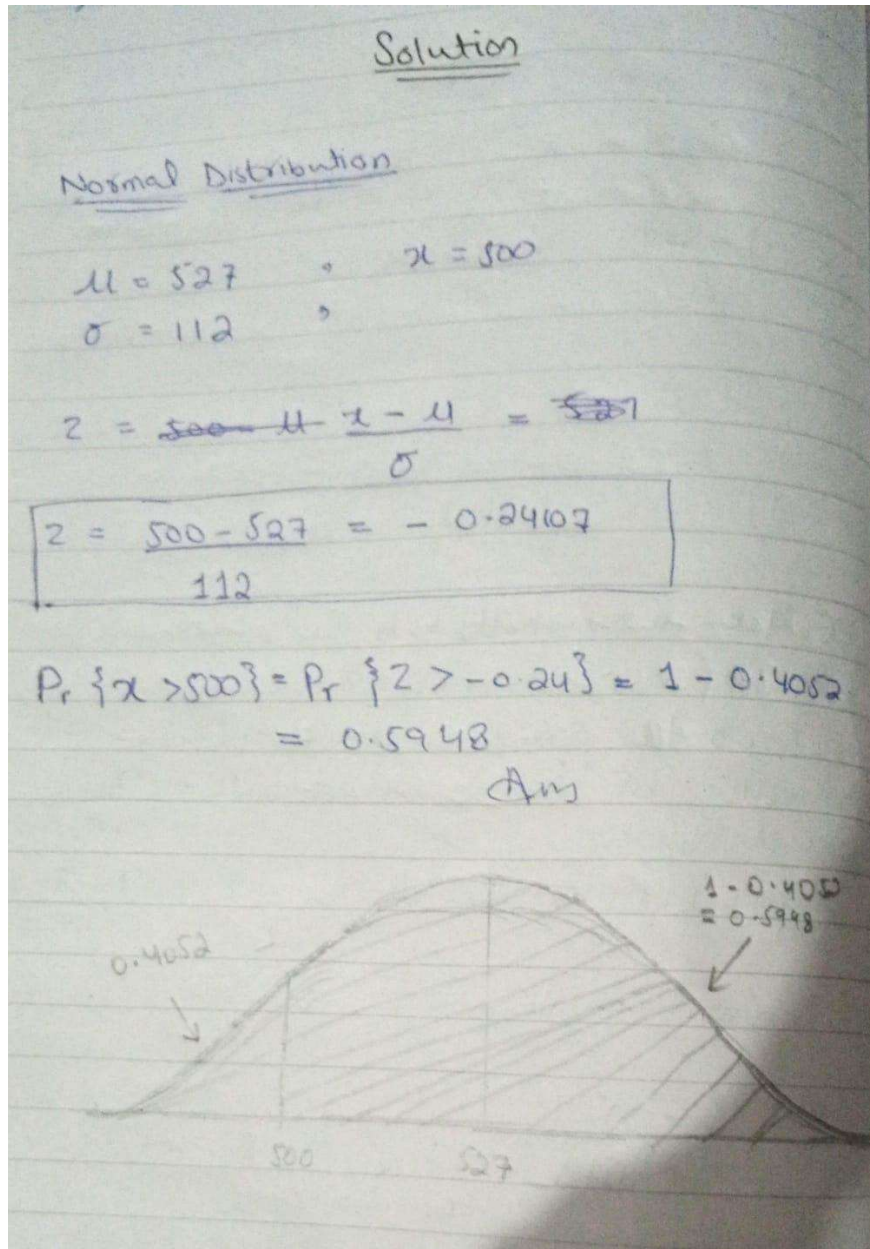 Solution
Normal Distribution
μ = 527 , x = 500
σ = 112 ,
z = x - μ =
σ
z = 500 - 527 = - 0.24107
112
Pr {x >500} = Pr {z > -0.24} = 1 - 0.4052
= 0.5948
Ans
1 - 0.4052
= 0.5948
0.4052
500 527